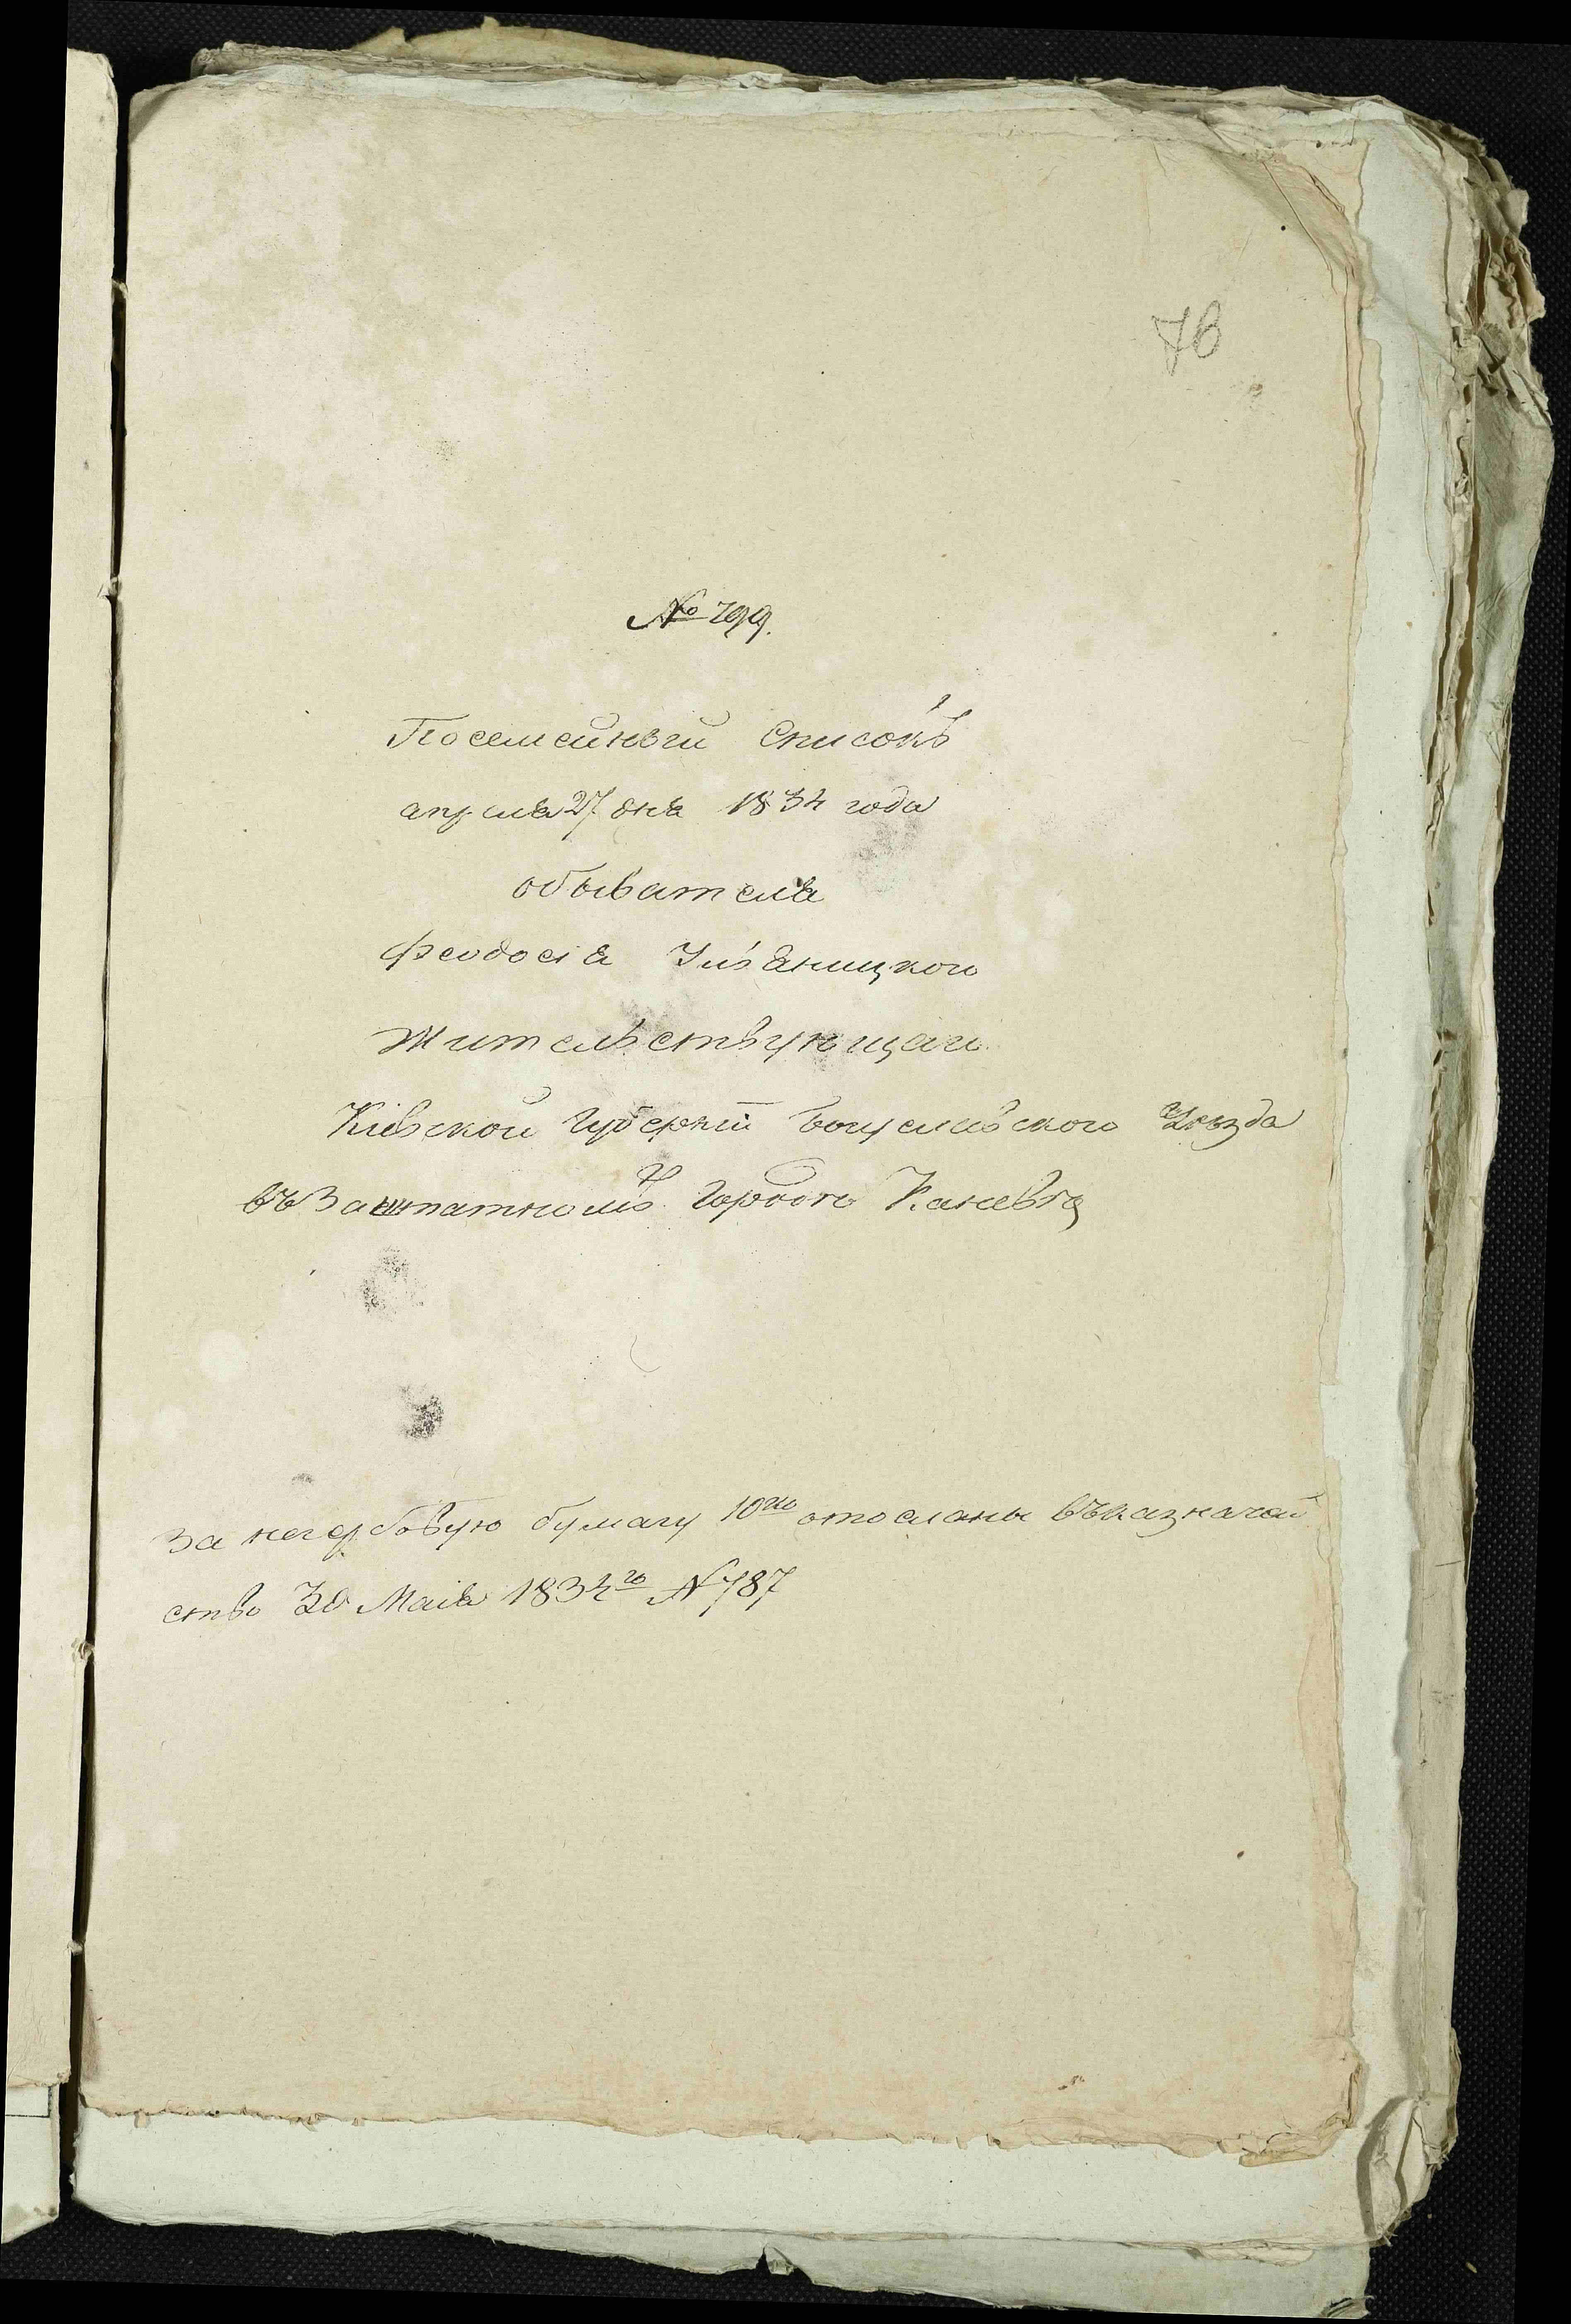 76
№ 299.
Посемейный Списокъ
апреля 27 дня 1834 года
обывателя
Феодосія Ульяницкого
Жительствующаго
Кіевской Губерніи Богуславского Уезда
въ Заштатномъ Городѣ Каневѣ
За негербовую бумагу 10ко отосланы въ казначей
ство 30 Маія 1834го № 787